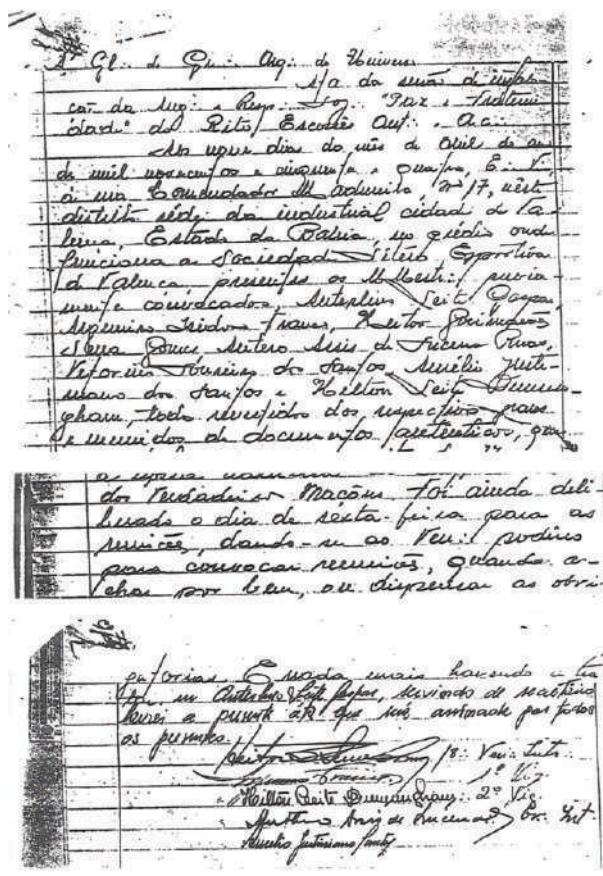 Á Gl. do Gr. Arq. do Universo
Ata da sessão de instala-
ção da Aug. e Resp. Loj. "Paz e Fraterni
dade" do Rito Escocês Ant. e Ac.
Aos nove dias do mês de Abril do ano
de mil novecentos e cinquenta e quatro, E. V.,
à rua Comendador Madureira, nº 17, neste
distrito sede da industrial cidade de Va-
lença, Estado da Bahia, no prédio onde
funciona a Sociedade Lítero Esportiva
de Valença, presentes os MMestr. previa-
mente convocados, Leite Gaspar,
Isidoro Franco, Heitor Guimarães
Gomes Antero Assis de Lucena
dos Santos, Aurélio Justi-
niano dos Santos e Hilton Leite
gham, todos revestidos dos respectivos graus
e munidos de documentos autenticos, que
dos verdadeiros Maçons. Foi ainda deli-
berado o dia de sexta-feira para as
reuniões, dando-se ao Ven. poderes
para convocar reuniões, quando a-
char por bem, ou dispensar as obri-
gatorias. E nada mais havendo a tra
tar eu Leite Gaspar, servindo de secretário
lavrei a presente ata que será assinada por todos
os presentes.
Ven. Inst.
1º Vig.
Hilton Leite 2º Vig.
Assis de Lucena Or. Int.
Aurelio Justiniano Santos